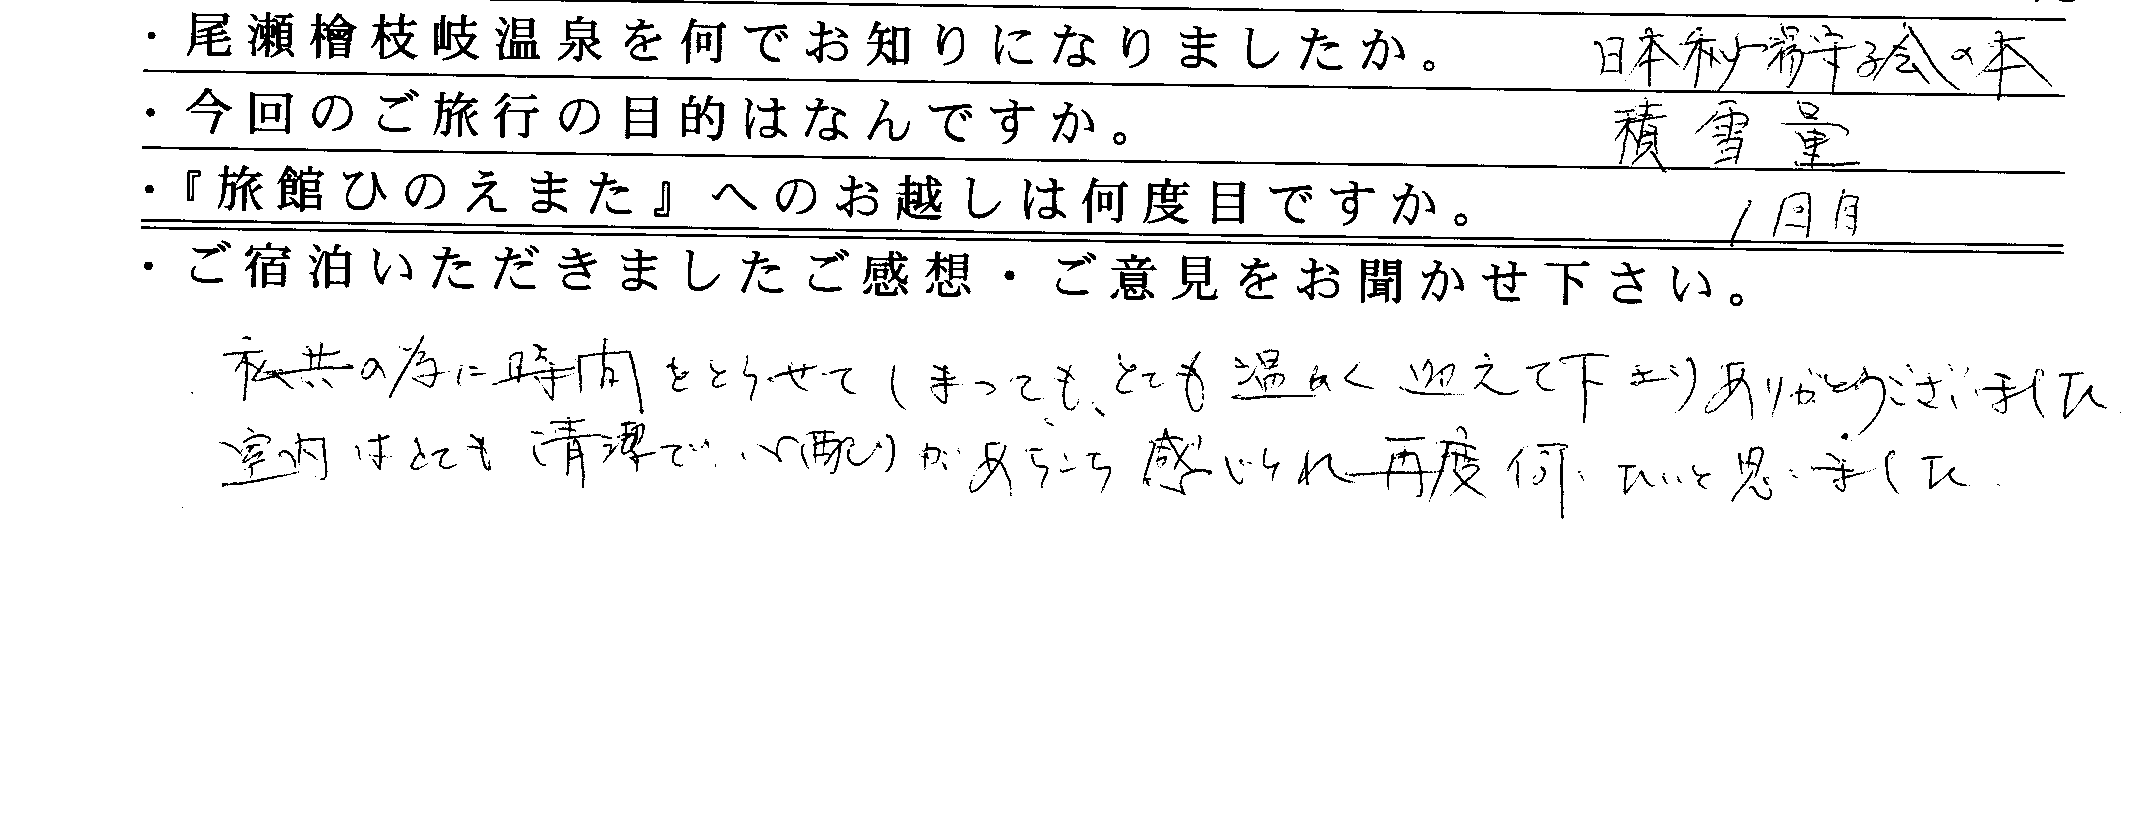 ・尾瀬檜枝岐温泉を何でお知りになりましたか。 日本秘湯守る会の本
・今回のご旅行の目的はなんですか。 積雪量
・『旅館ひのえまた』へのお越しは何度目ですか。 1回目
・ご宿泊いただきましたご感想・ご意見をお聞かせ下さい。
私共の為に時間をとらせてしまっても、とても温かく迎えて下さりありがとうございました
室内はとても清潔で心配りがあちこち感じられ再度伺いたいと思いました.